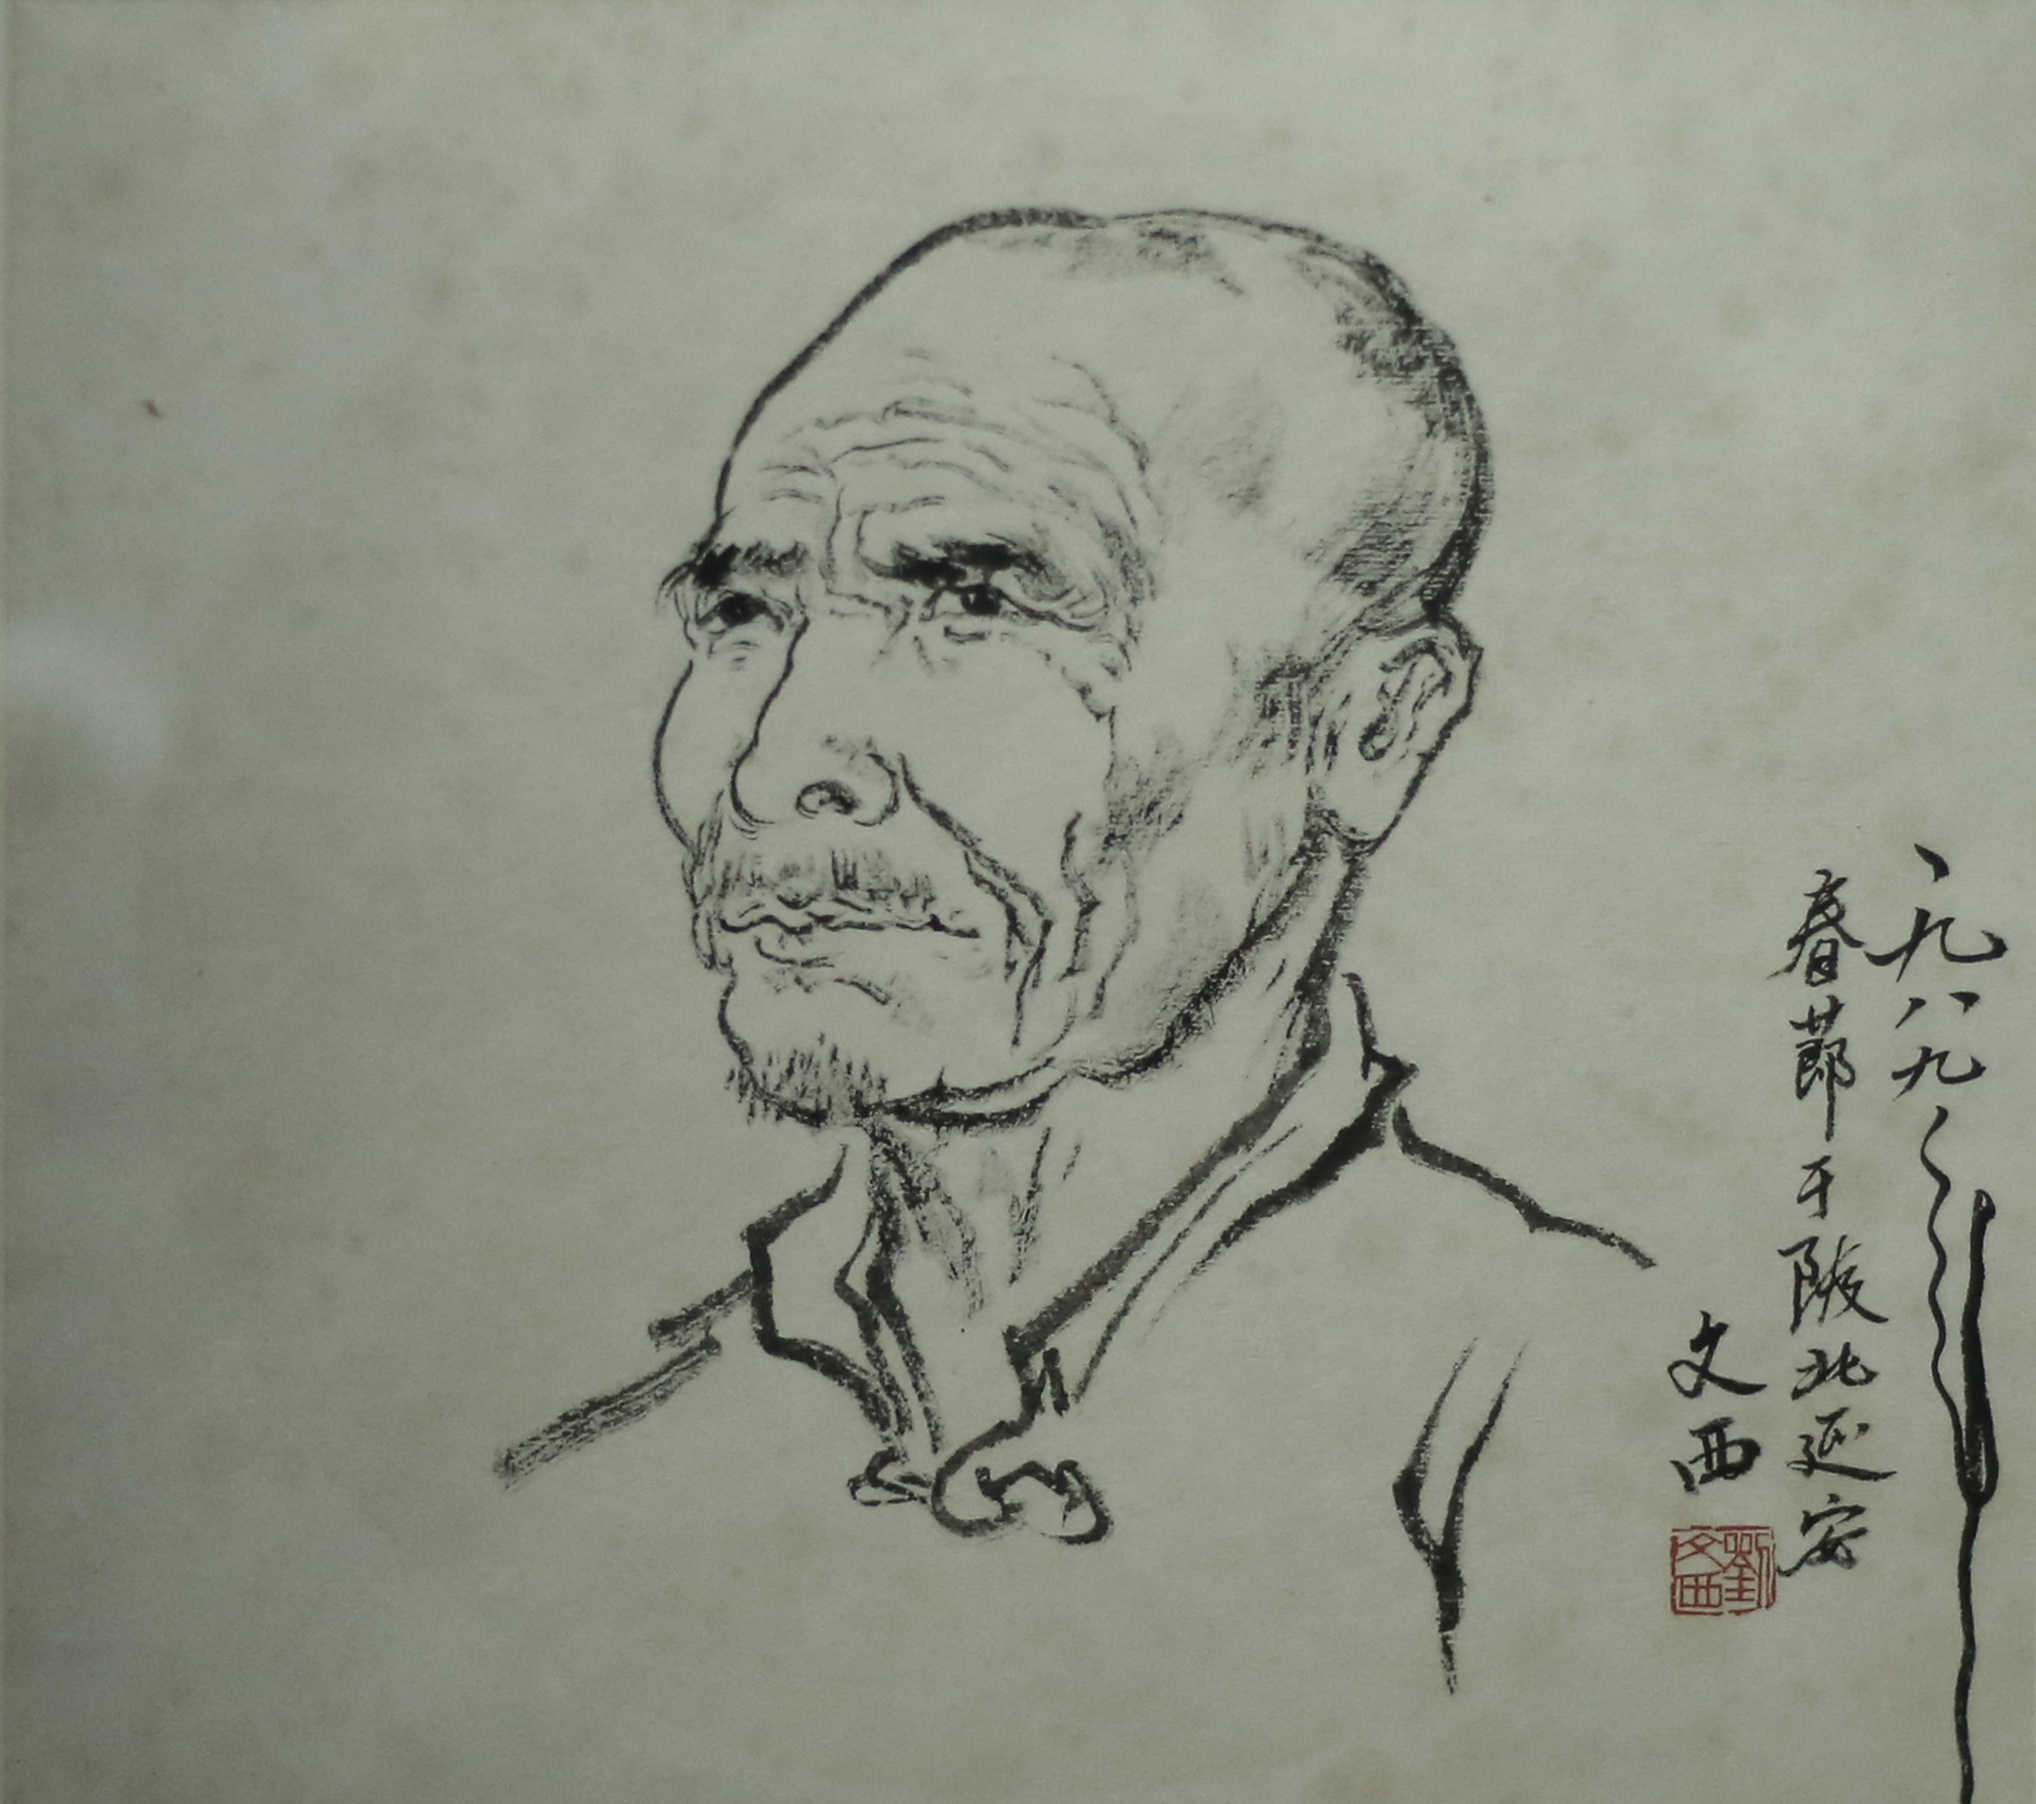 一九八九
春节于陕北延安
文西
劉文西